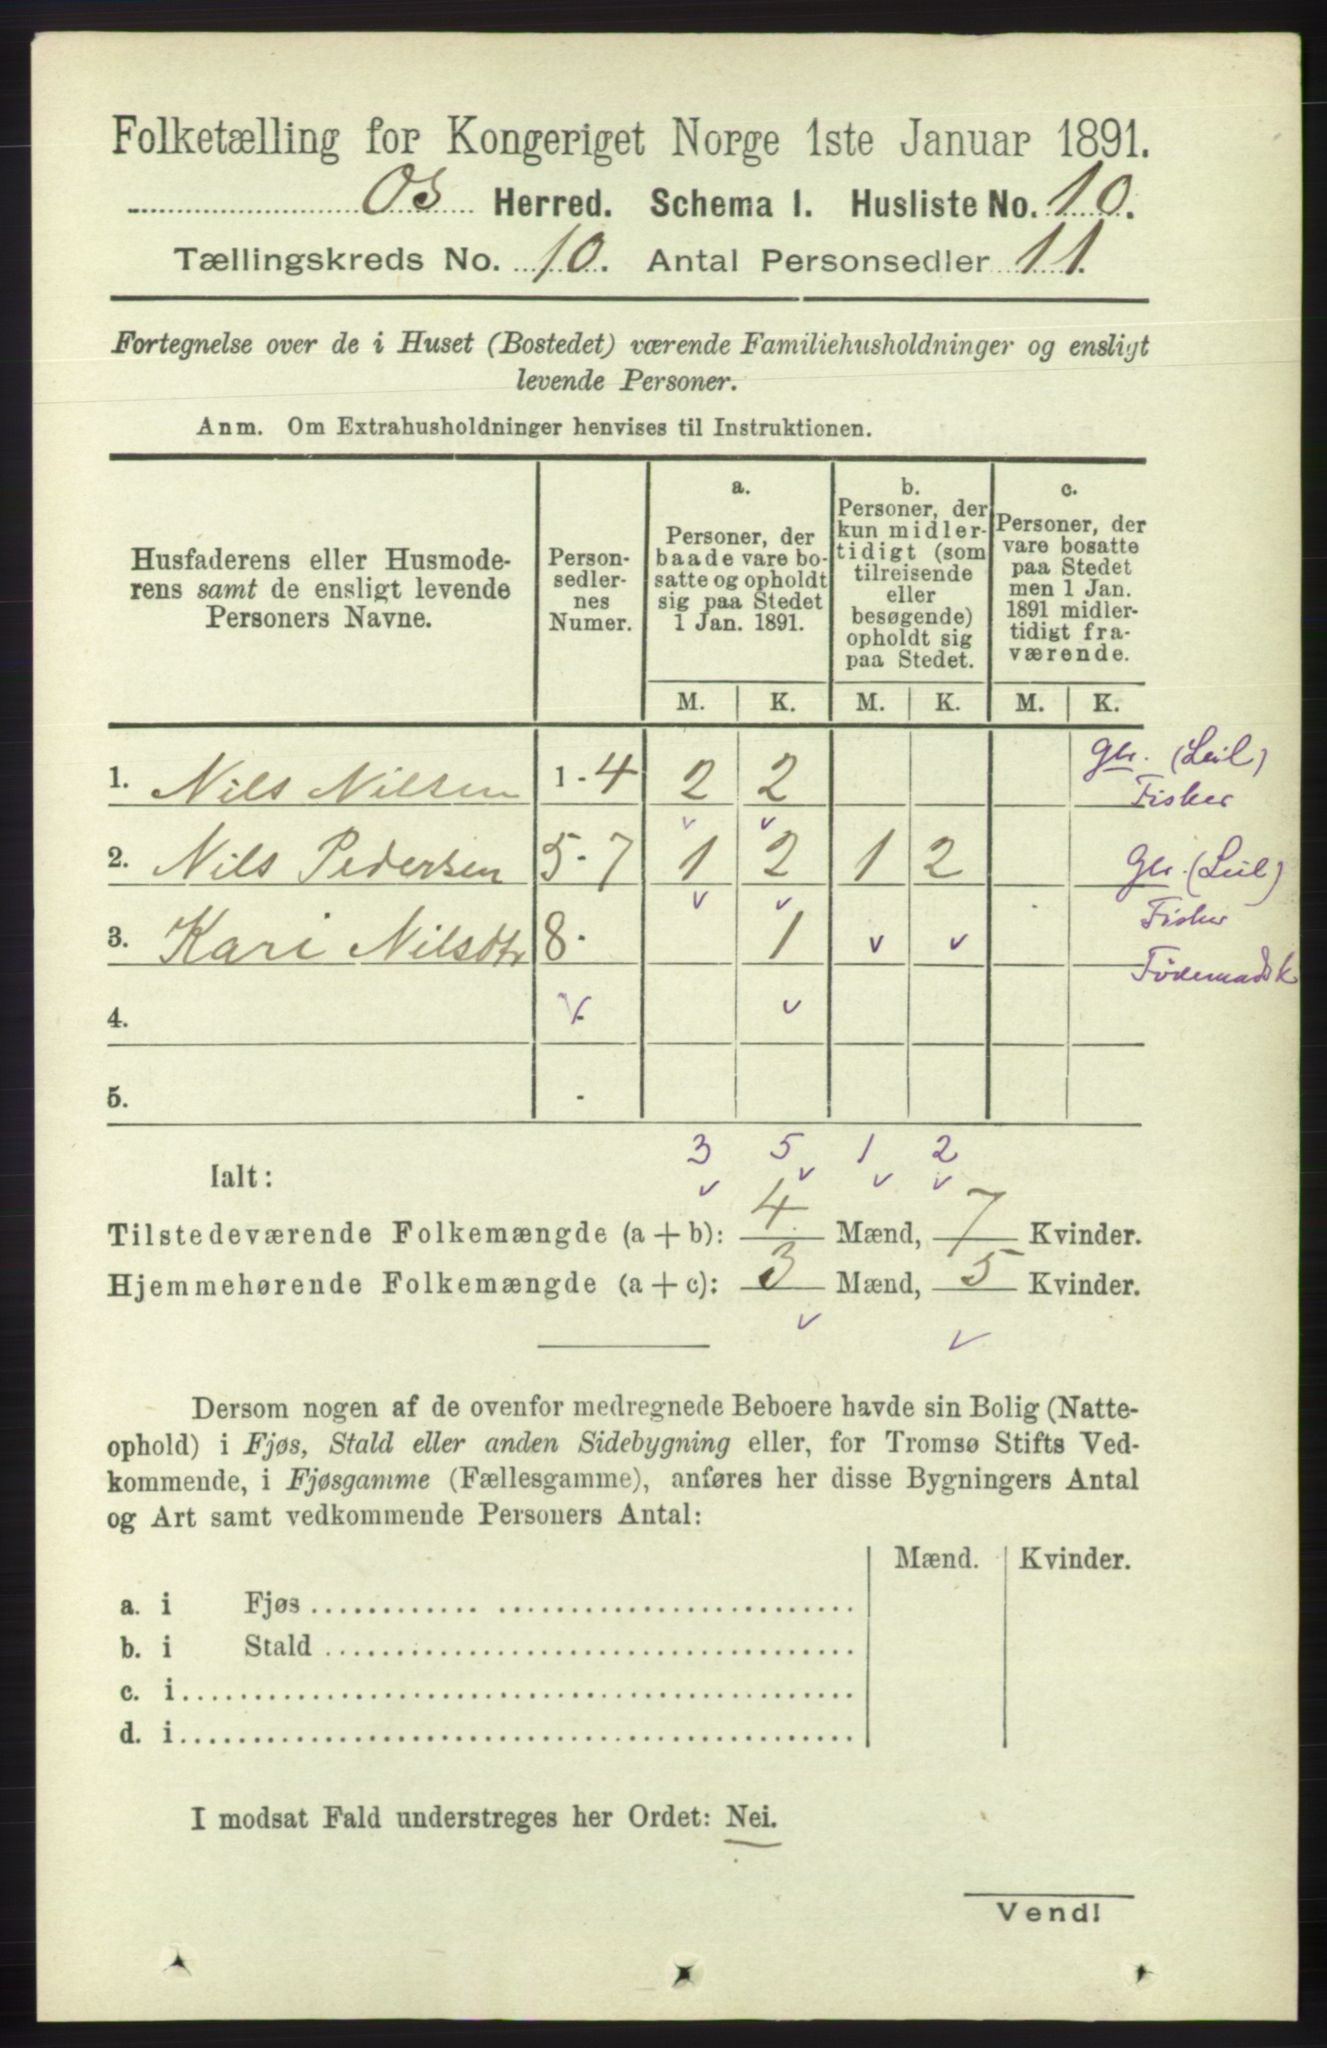 Folketælling for Kongeriget Norge 1ste Januar 1891.
Os Herred. Schema I. Husliste No. 10.
Tællingskreds No. 10. Antal Personsedler 11.
Fortegnelse over de i Huset (Bostedet) værende Familiehusholdninger og ensligt
levende Personer.
Anm. Om Extrahusholdninger henvises til Instruktionen.
Husfaderens eller Husmode-
rens samt de ensligt levende
Personers Navne.
Person-
sedler-
nes
Numer.
a.
Personer, der
baade vare bo-
satte og opholdt
sig paa Stedet
1 Jan. 1891.
b.
Personer, der
kun midler-
tidigt (som
tilreisende
eller
besøgende)
opholdt sig
paa Stedet.
c.
Personer, der
vare bosatte
paa Stedet
men 1 Jan.
1891 midler-
tidigt fra-
værende.
M. K. M. K. M. K.
1. Nils Nilsen 1-4 2 2 Gbr. (Leil)
Fisker
2. Nils Pedersen 5-7 1 2 1 2 Gbr. (Leil)
Fisker
3. Kari Nilsdtr 8- 1
Føderaadsk
4.
5. -
3 5 1 2
Ialt:
Tilstedeværende Folkemængde (a + b): 4 Mænd, 7 Kvinder.
Hjemmehørende Folkemængde (a + c): 3 Mænd, 5 Kvinder.
Dersom nogen af de ovenfor medregnede Beboere havde sin Bolig (Natte-
ophold) i Fjøs, Stald eller anden Sidebygning eller, for Tromsø Stifts Ved-
kommende, i Fjøsgamme (Fællesgamme), anføres her disse Bygningers Antal
og Art samt vedkommende Personers Antal:
Mænd. Kvinder.
a. i Fjøs
b. i Stald
c. i
d. i
I modsat Fald understreges her Ordet: Nei.
Vend!